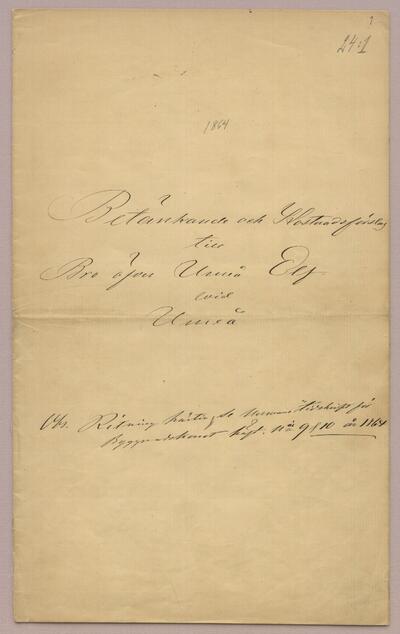 24:1
1864
Betänkande och Kostnadsförslag
till
Bro öfver Umeå Elf
vid
Umeå
Obs. Ritning härtill, se Tidskrift för
Byggnadskonst häft. 9 & 10 år 1864